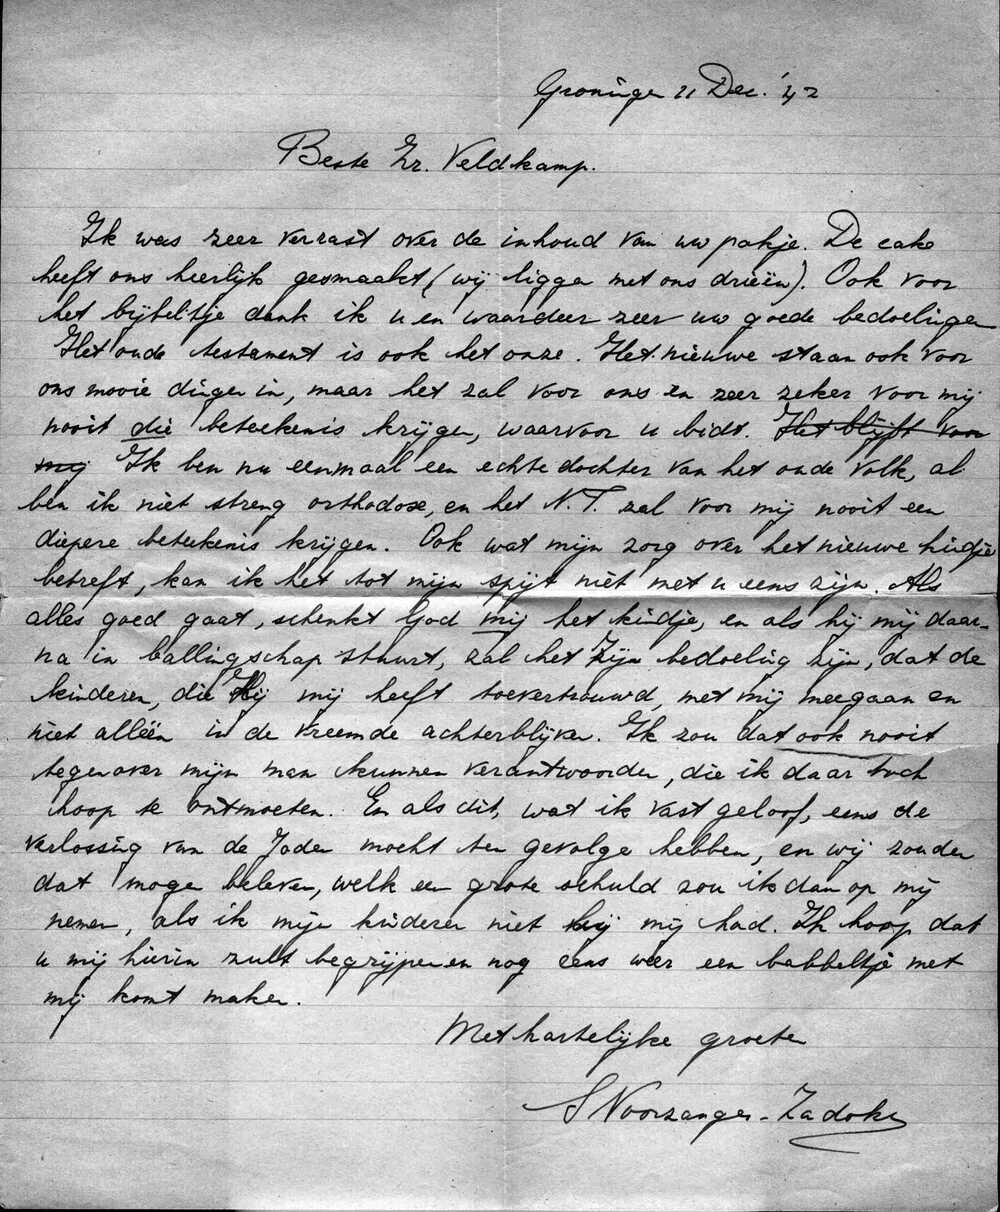 Groningen 21 Dec. '42
Beste Zr. Veldkamp.
Ik was zeer verrast over de inhoud van uw pakje. De cake
heeft ons heerlijk gesmaakt, (wij liggen met ons drieën). Ook voor
het bijbeltje dank ik u en waardeer zeer uw goede bedoelingen
Het oude testament is ook het onze. In Het nieuwe staan ook voor
ons mooie dingen in, maar het zal voor ons en zeer zeker voor mij
nooit die beteekenis krijgen, waarvoor u bidt. Het blijft voor
mij Ik ben nu eenmaal een echte dochter van het oude volk, al
ben ik niet streng orthodox, en het N.T. zal voor mij nooit een
diepere beteekenis krijgen. Ook wat mijn zorg over het nieuwe kindje
betreft, kan ik het tot mijn spijt niet met u eens zijn. Als
alles goed gaat, schenkt God mij het kindje, en als hij mij daar-
na in ballingschap stuurt, zal het Zijn bedoeling zijn, dat de
kinderen, die Hij mij heeft toevertrouwd, met mij meegaan en
niet alléén in de vreemde achterblijven. Ik zou dat ook nooit
tegenover mijn man kunnen verantwoorden, die ik daar toch
hoop te ontmoeten. En als dit, wat ik vast geloof, eens de
verlossing van de Joden mocht ten gevolge hebben, en wij zouden
dat mogen beleven, welk een grote schuld zou ik dan op mij
nemen, als ik mijn kinderen niet bij mij had. Ik hoop dat
u mij hierin zult begrijpen en nog eens weer een babbeltje met
mij komt maken.
Met hartelijke groeten
S Voorzanger-Zadoks